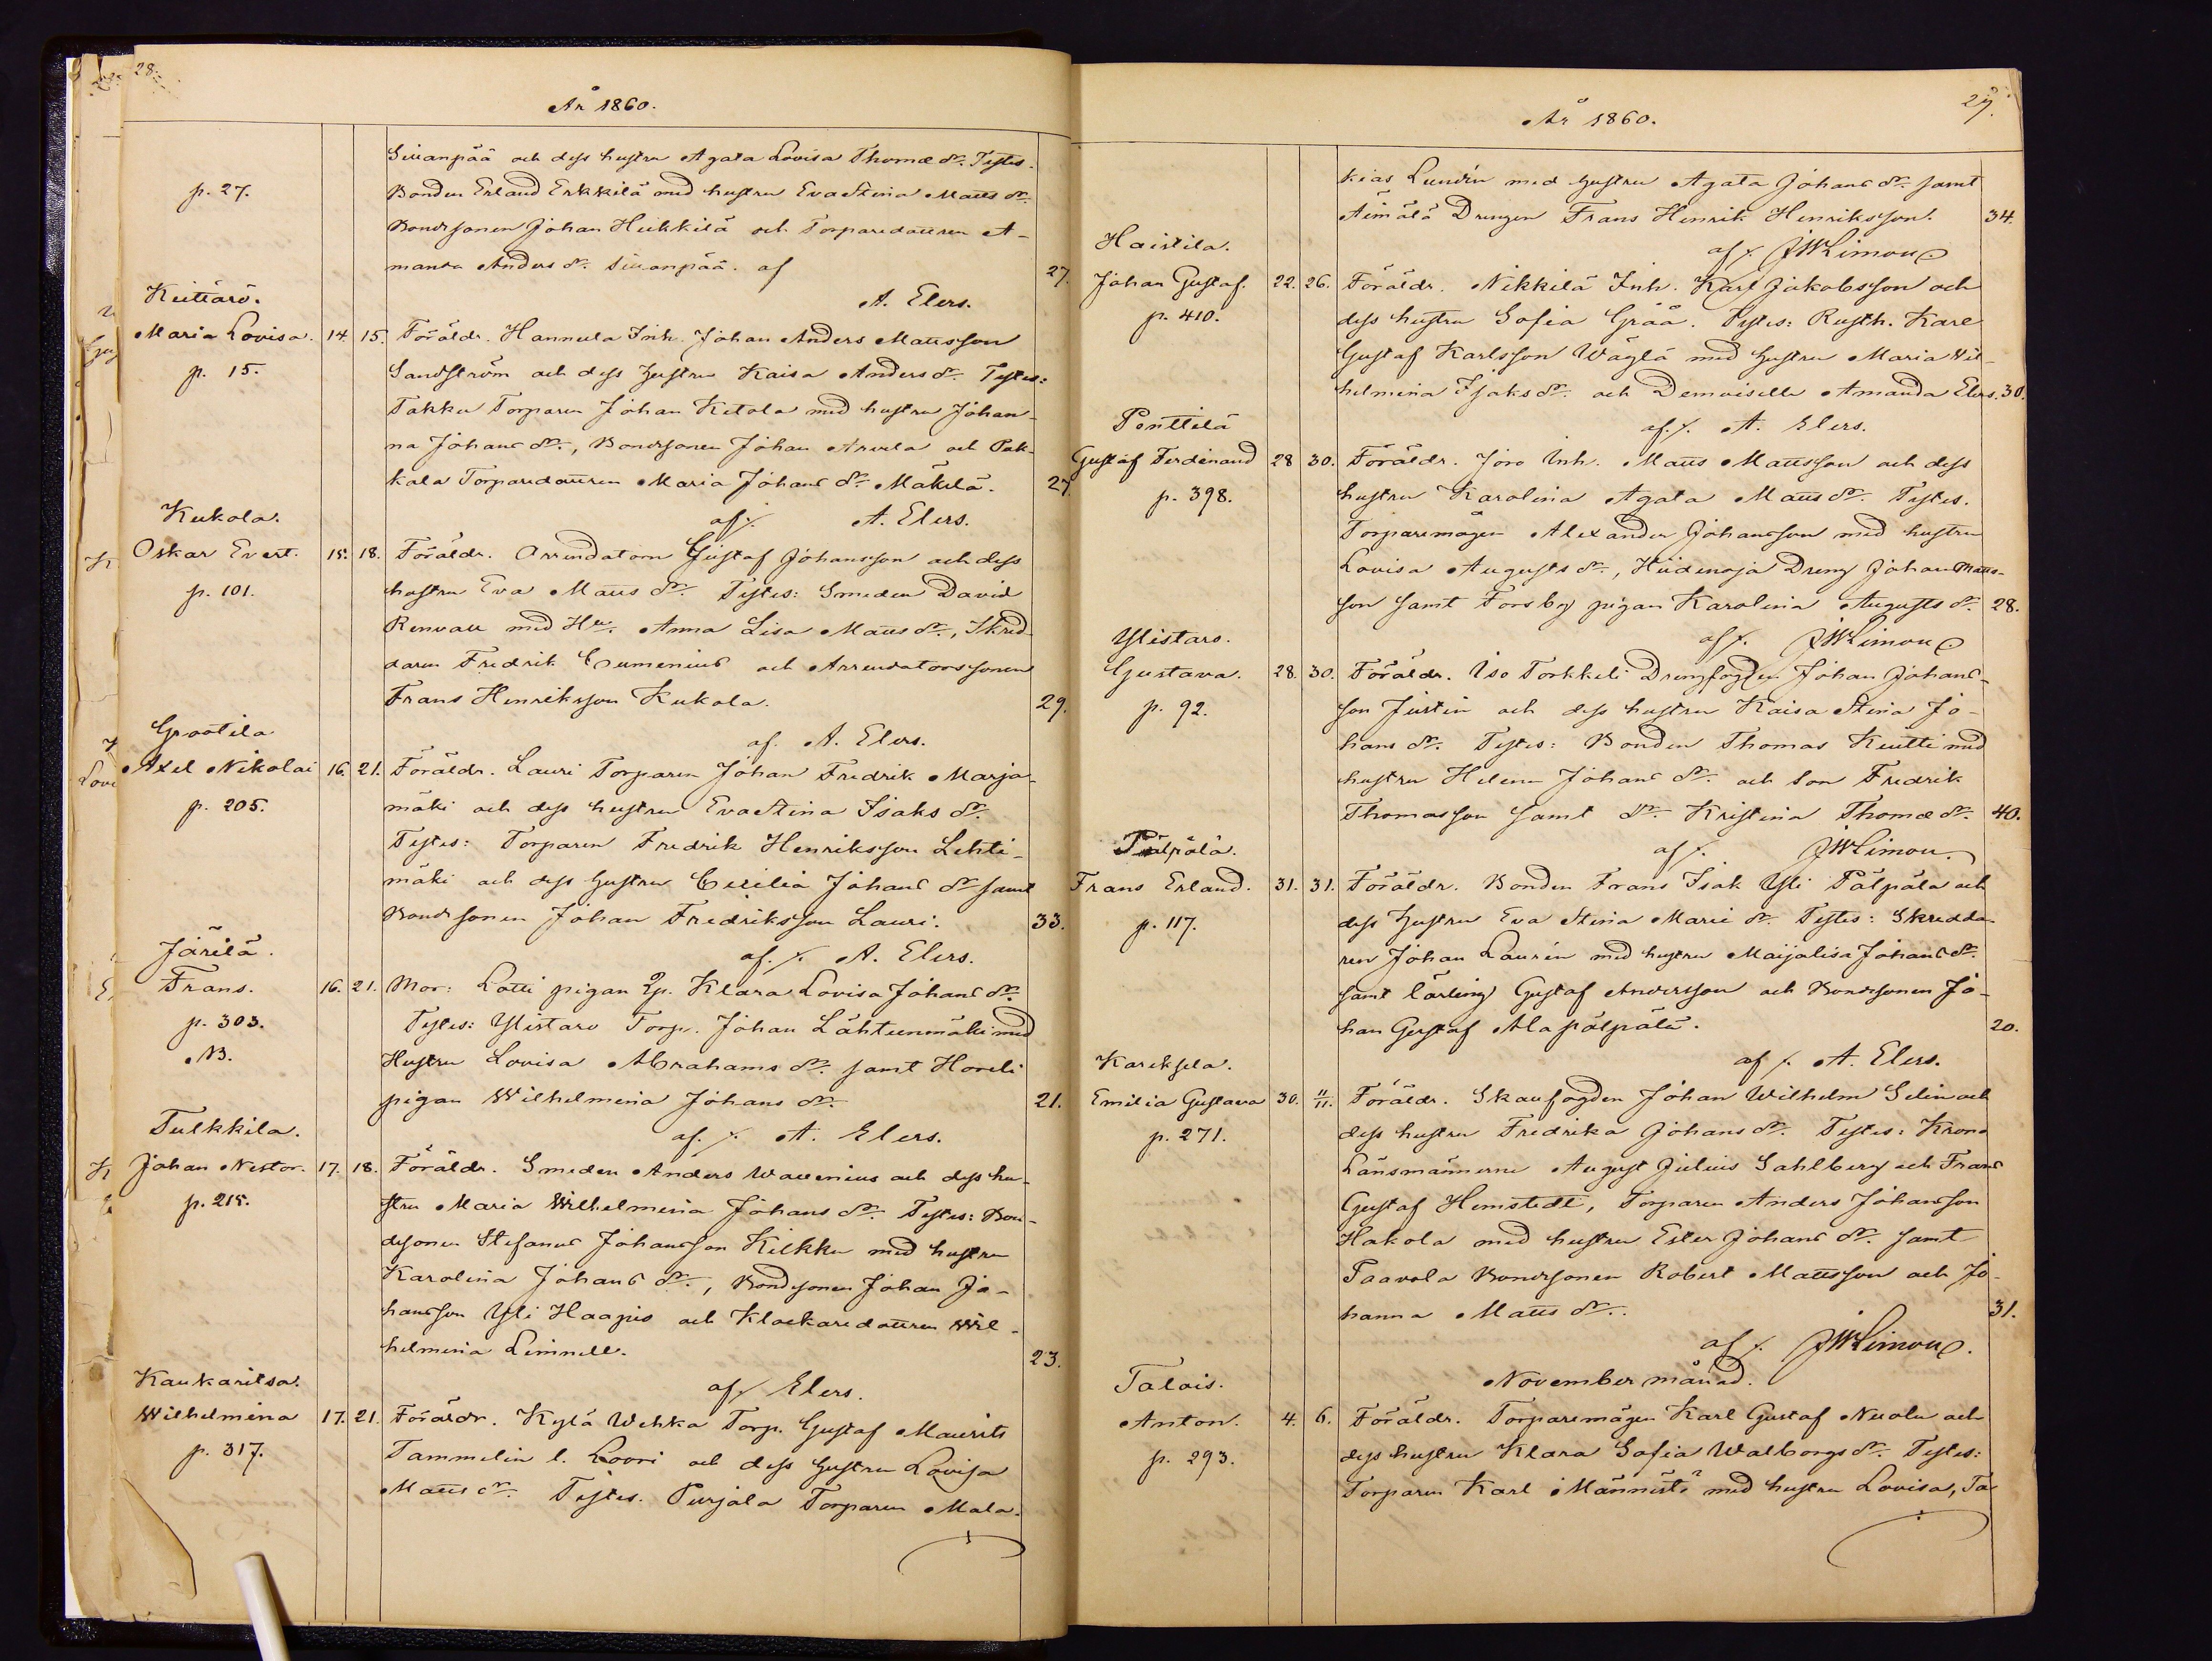 28.
År 1860.
Siuanpää och dess hustru Agata Lovisa Thomæ dr. Testes.
p. 27.
Bonden Erland Erkkilä med hustru Eva Stina Matts dr.
Bondsonen Johan Heikkilä och Torparedottren A-
manda Anders dr. Siuanpää. af
27.
A. Elers.
Keittärö.
Maria Lovisa. 14. 15. Föräldr. Hannula Inh. Johan Anders Mattsson
p. 15.
Sandström och dess hustru Kaisa Anders dr. Testes:
Takku Torparen Johan Ketola med hustru Johan-
na Johans dr., Bondsonen Johan Arvela och Pak-
kala Torparedottren Maria Johans dr. Mäkelä. 27.
af /. A. Elers.
Kukola.
Oskar Evert. 15. 18. Föräldr. Arrendatorn Gustaf Johansson och dess
p. 101.
hustru Eva Matts dr. Testes: Smeden David
Renvall med Hu. Anna Lisa Matts dr., Skred-
daren Fredrik Eumenius och Arrendatorssonen
Frans Henriksson Kukola. 29.
af. A. Elers.
Grootila
Axel Nikolai 16. 21. Föräldr. Lauri Torparen Johan Fredrik Marja-
p. 205.
mäki och dess hustru Eva Stina Isaks dr.
Testes: Torparen Fredrik Henriksson Lehti-
mäki och dess hustru Cecilia Johans dr. samt
Bondsonen Johan Fredriksson Lauri. 33.
af. /. A. Elers.
Järilä.
Frans. 16. 21. Mor: Latti pigan Qp. Klara Lovisa Johans dr.
p. 303.
NB.
Testes: Ylistaro Torp. Johan Lähteenmäki med
Hustru Lovisa Abrahams dr. samt Horeli
pigan Wilhelmina Johans dr. 21.
af. /. A. Elers.
Tulkkila.
Johan Nestor. 17. 18. Föräldr. Smeden Anders Wallenius och dess hu-
p. 215.
stru Maria Wilhelmina Johans dr. Testes: Bon-
desonen Stefanus Johansson Kilkku med hustru
Karolina Johans dr., Bondsonen Johan Jo-
hansson Yli Haapio och Klockaredottren Wil-
helmina Limnell. 23.
af / Elers.
Kaukaritsa.
Wilhelmina 17. 21. Föräldr. Kylä Wehka Torp. Gustaf Maurits
p. 317.
Tammelin l. Loori och dess hustru Lovisa
Matts dr. Testes. Purjala Torparen Mala-

27.
År 1860.
kias Lundén med hustru Agata Johans dr. samt
Äimälä Drengen Frans Henrik Henriksson. 34.
af /. JWLimon
Haistila.
Johan Gustaf. 22. 26. Föräldr. Nikkilä Inh. Karl Jakobsson och
p. 410.
dess hustru Sofia Grää. Testes: Rusth. Karl
Gustaf Karlsson Wäglä med hustru Maria Wil-
helmina Isaks dr. och Demoiselle Amanda Elers. 30.
af. /. A. Elers.
Penttilä
Gustaf Ferdinand 28 30. Föräldr. Joro Inh. Matts Mattsson och dess
p. 398.
hustru Karolina Agata Matts dr. Testes.
Torparemågen Alexander Johansson med hustru
Lovisa Augusts dr., Hiidenoja Dreng Johan Matts-
son samt Forsby pigan Karolina Augusts dr. 28.
af /. JWLimon
Ylistaro.
Gustava. 28. 30. Föräldr. Iso Torkkeli Drengfogden Johan Johans-
p. 92.
son Justin och dess hustru Kaisa Stina Jo-
hans dr. Testes: Bonden Thomas Keutti med
hustru Helena Johans dr. och son Fredrik
Thomasson samt dr. Kristina Thomæ dr. 40.
af /. JWLimon.
Pälpälä.
Frans Erland. 31. 31. Föräldr. Bonden Frans Isak Yli Pälpälä och
p. 117.
dess hustru Eva Stina Marie dr. Testes: Skredda-
ren Johan Laurén med hustru Maijalisa Johans dr.
samt lärling Gustaf Andersson och Bondsonen Jo-
han Gustaf Ala pälpälä. 20.
af /. A. Elers.
Kareksela.
Emilia Gustava 30. 11/11. Föräldr. Skaufogden Johan Wilhelm Selin och
p. 271.
dess hustru Fredrika Johans dr. Testes: Krono
Länsmännerne August Julius Sahlberg och Frans
Gustaf Hemstedt, Torparen Anders Johansson
Hakola med hustru Ester Johans dr. samt
Paavola Bondsonen Robert Mattsson och Jo-
hanna Matts dr. 31.
af /. JWLimon.
November månad.
Talois.
Anton. 4. 6. Föräldr. Torparemågen Karl Gustaf Nuolu och
p. 293.
dess hustru Klara Sofia Walborgs dr. Testes:
Torparen Karl Männistö med hustru Lovisa, Ta